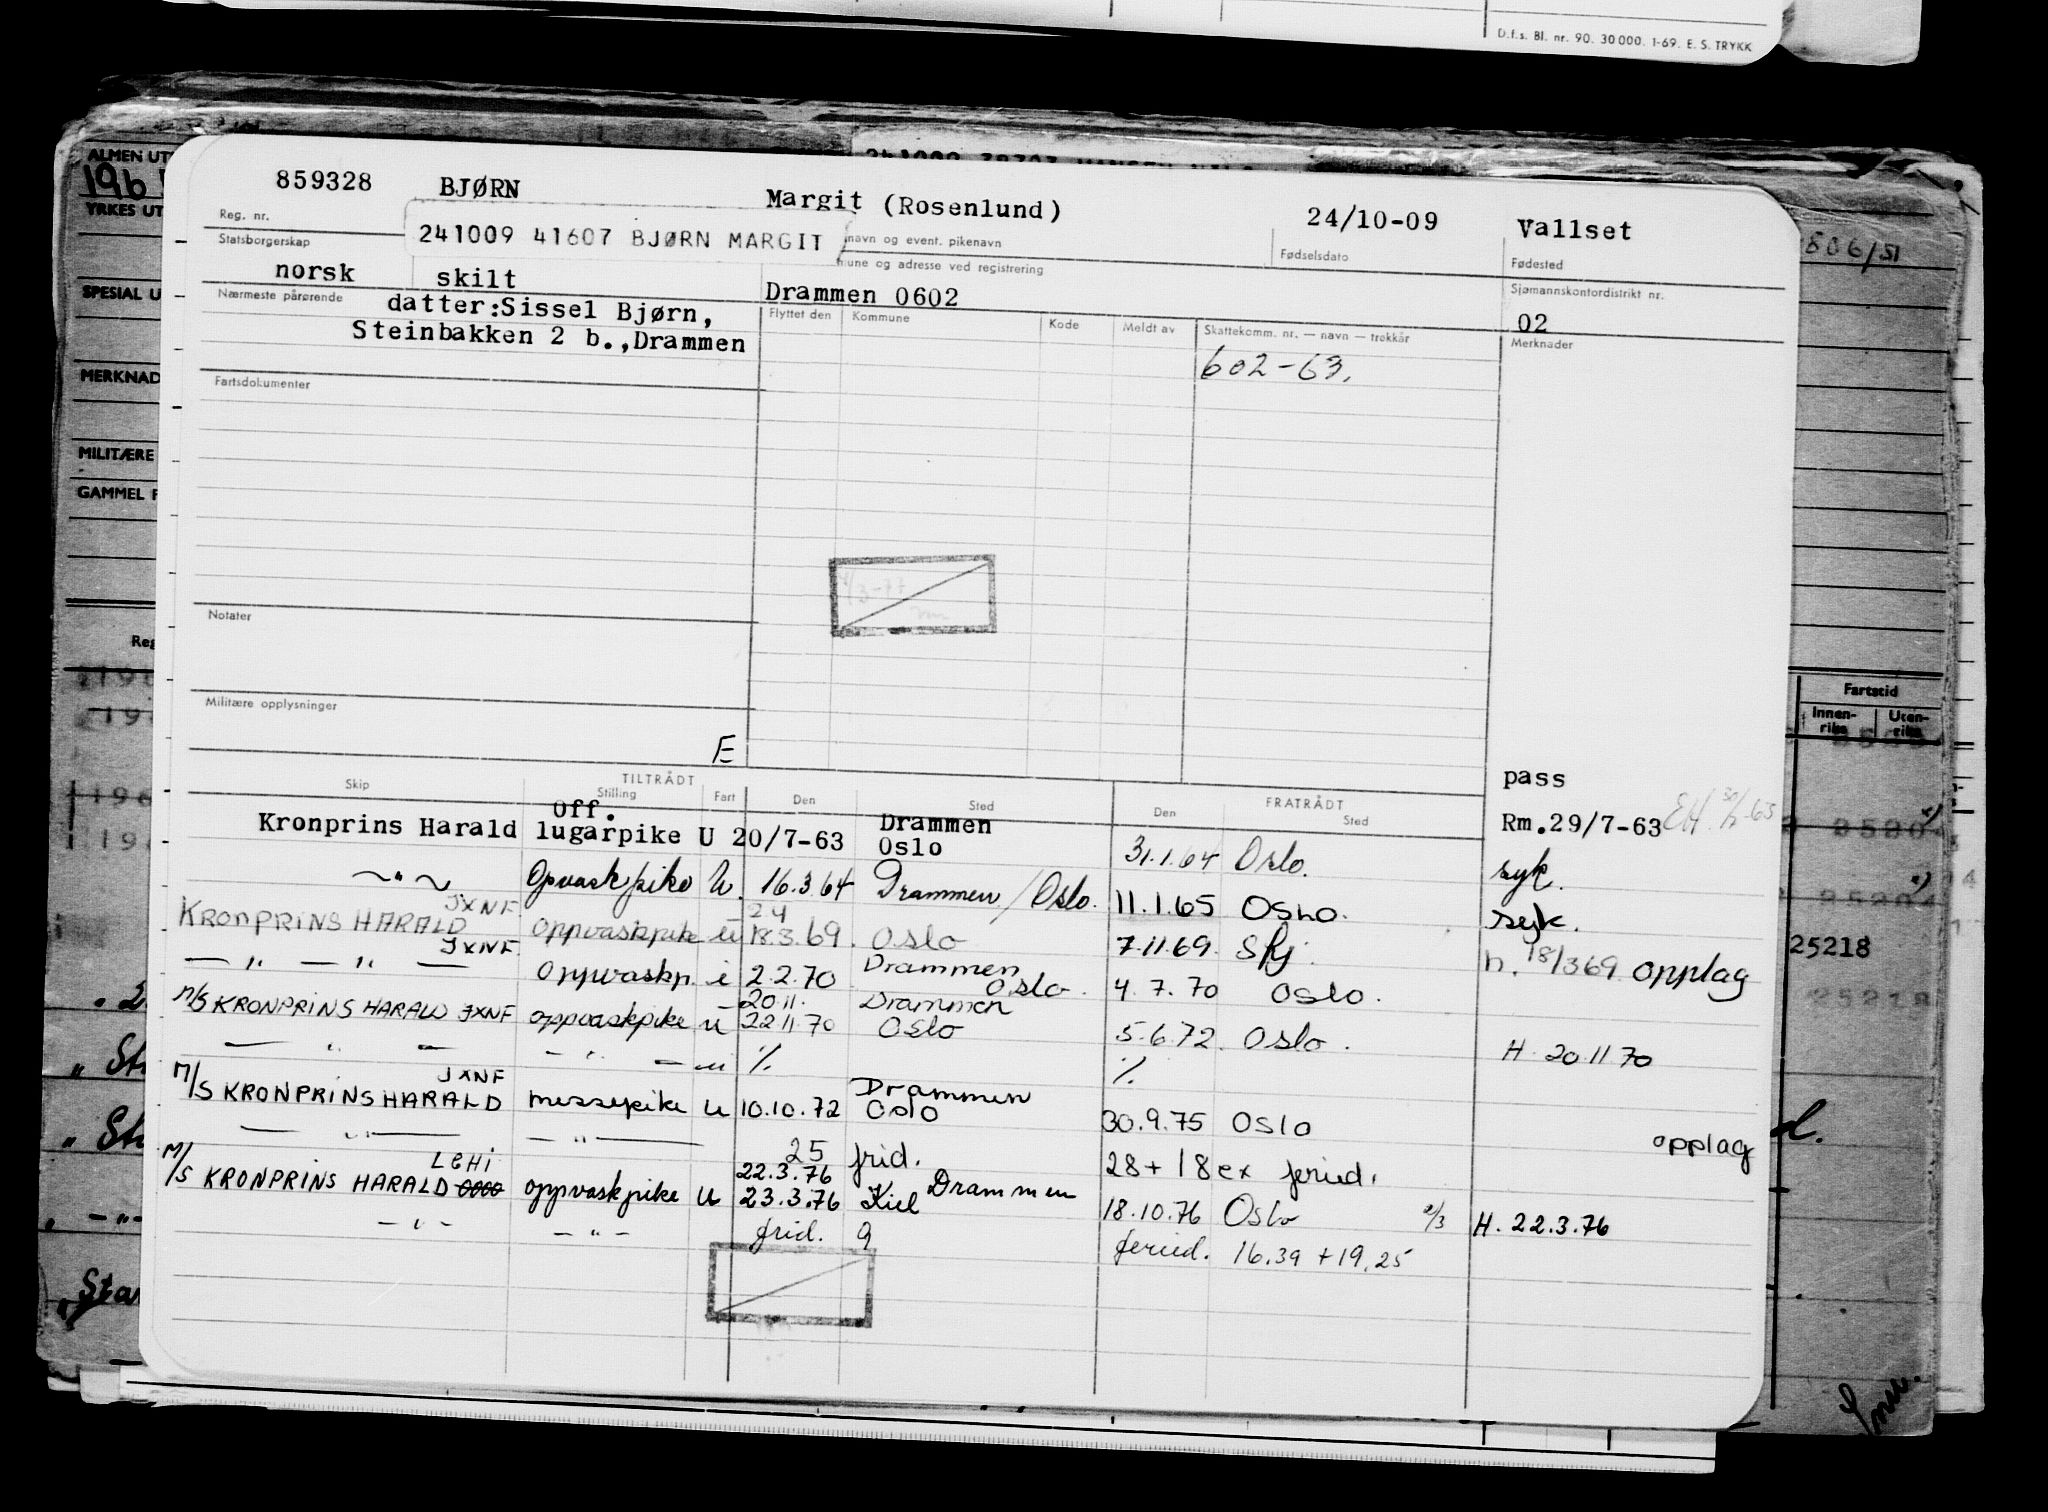 D.f.s. Bl. nr. 90. 30 000. 1-69. E. S. TRYKK
ALMEN UT
YRKES UT
SPESIAL U
MERKNAD
MILITÆRE
GAMMEL F
859328 BJØRN Margit (Rosenlund) 24/10-09 Vallset
Reg. nr. navn og event. pikenavn Fødselsdato Fødested
241009 41607 BJØRN MARGIT
Statsborgerskap mune og adresse ved registrering Sjømannskontordistrikt nr.
norsk skilt Drammen 0602 02
Nærmeste pårørende Flyttet den Kommune Kode Meldt av Skattekomm. nr. — navn — trekkår Merknader
datter:Sissel Bjørn,
Steinbakken 2 b.,Drammen
602-63.
Fartsdokumenter
Notater
Militære opplysninger
E
Skip TILTRÅDT Stilling Fart Den Sted FRATRÅDT Den Sted
pass
Off. Drammen
Kronprins Harald lugarpike U 20/7-63 Oslo 31.1.64 Oslo. Rm.29/7-63
syk.
— " — Opvaskpike U. 16.3.64 Drammen/Oslo. 11.1.65 OSLO. syk.
JXNF 24
KRONPRINS HARALD oppvaskpike u 18.3.69. Oslo 7.11.69. Sfj. h. 18/3 69 opplag
JXNF Drammen
— " — " — Oppvaskp. i 2.2.70 Oslo. 4.7.70 Oslo.
20.11. Drammen
M/S KRONPRINS HARALD JXNF oppvaskpike u 22.11.70 Oslo 5.6.72. Oslo. H. 20.11.70
— " — — " — — u % %
JXNF Drammen
M/S KRONPRINS HARALD messepike u 10.10.72 Oslo 30.9.75 Oslo opplag
— " — — " — 25 frid. 28+18 ex feried.
LEHI 22.3.76 Drammen
M/S KRONPRINS HARALD oppvaskpike u 23.3.76 Kiel 18.10.76 Oslo 2/3 H. 22.3.76
— " — — " — frid. 9 feried. 16.39 + 19.25
506/51
Fartstid
Innen-riks Uten-riks
25218